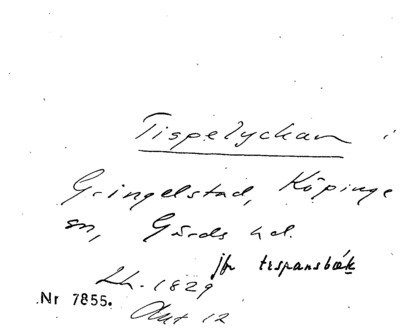 Tispelyckan i
Gringelstad, Köpinge
sn, Gärds hd.
jfr tispansbäk
Lh. 1829
Nr 7855.
Akt 12